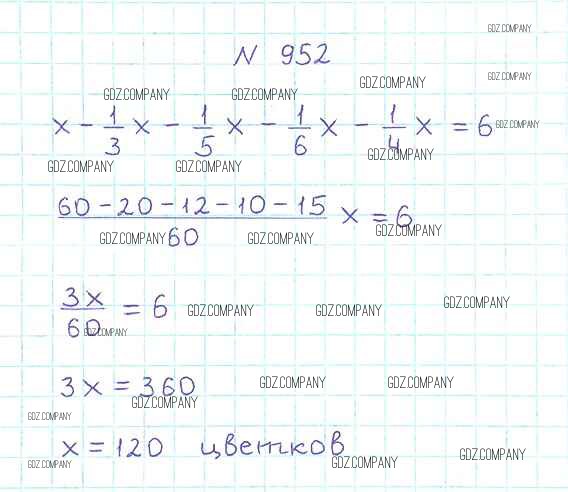 N 952
GDZ.COMPANY
GDZ.COMPANY
GDZ.COMPANY
GDZ.COMPANY GDZ.COMPANY
x - 1/3 x - 1/5 x - 1/6 x - 1/4 x = 6
GDZ.COMPANY
GDZ.COMPANY GDZ.COMPANY GDZ.COMPANY
60 - 20 - 12 - 10 - 15 / 60 x = 6
GDZ.COMPANY GDZ.COMPANY GDZ.COMPANY
3x/60 = 6
GDZ.COMPANY GDZ.COMPANY GDZ.COMPANY
GDZ.COMPANY
3x = 360
GDZ.COMPANY GDZ.COMPANY
GDZ.COMPANY
GDZ.COMPANY
x = 120 цветков
GDZ.COMPANY GDZ.COMPANY GDZ.COMPANY